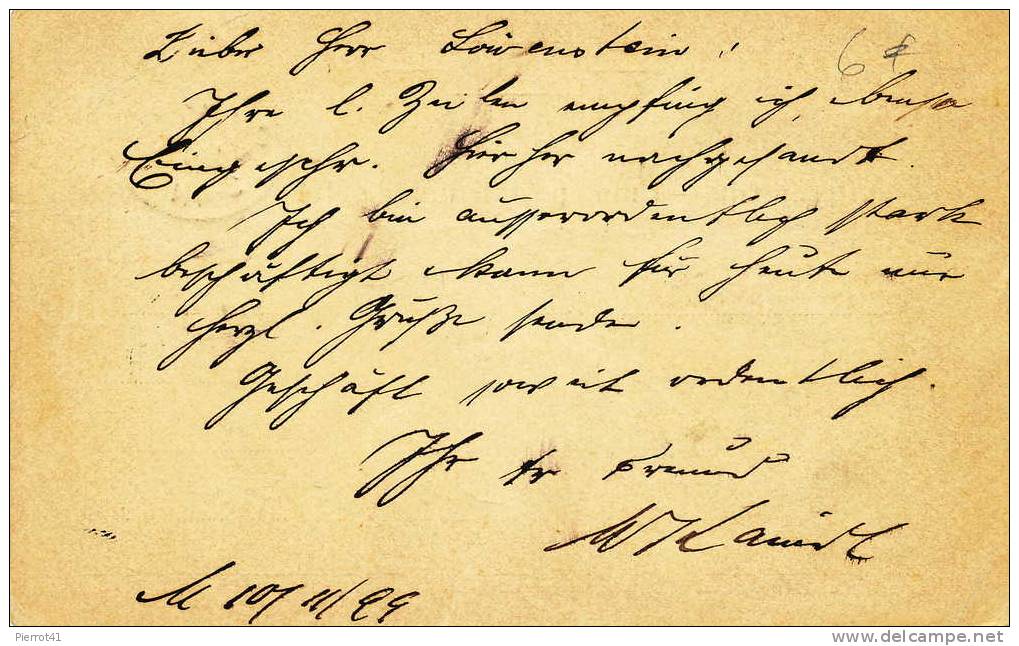 Lieber Herr Löwenstein!
6
Ihre l. Zeilen empfing ich, ebenso
Eingeschr. hierher nachgesandt.
Ich bin ausserordentlich stark
beschäftigt kann für heute nur
herzl. Grüße senden.
Geschäft soweit ordentlich.
Ihr tr Freund
M 10/11/99
Pierrot41
www.delcampe.net